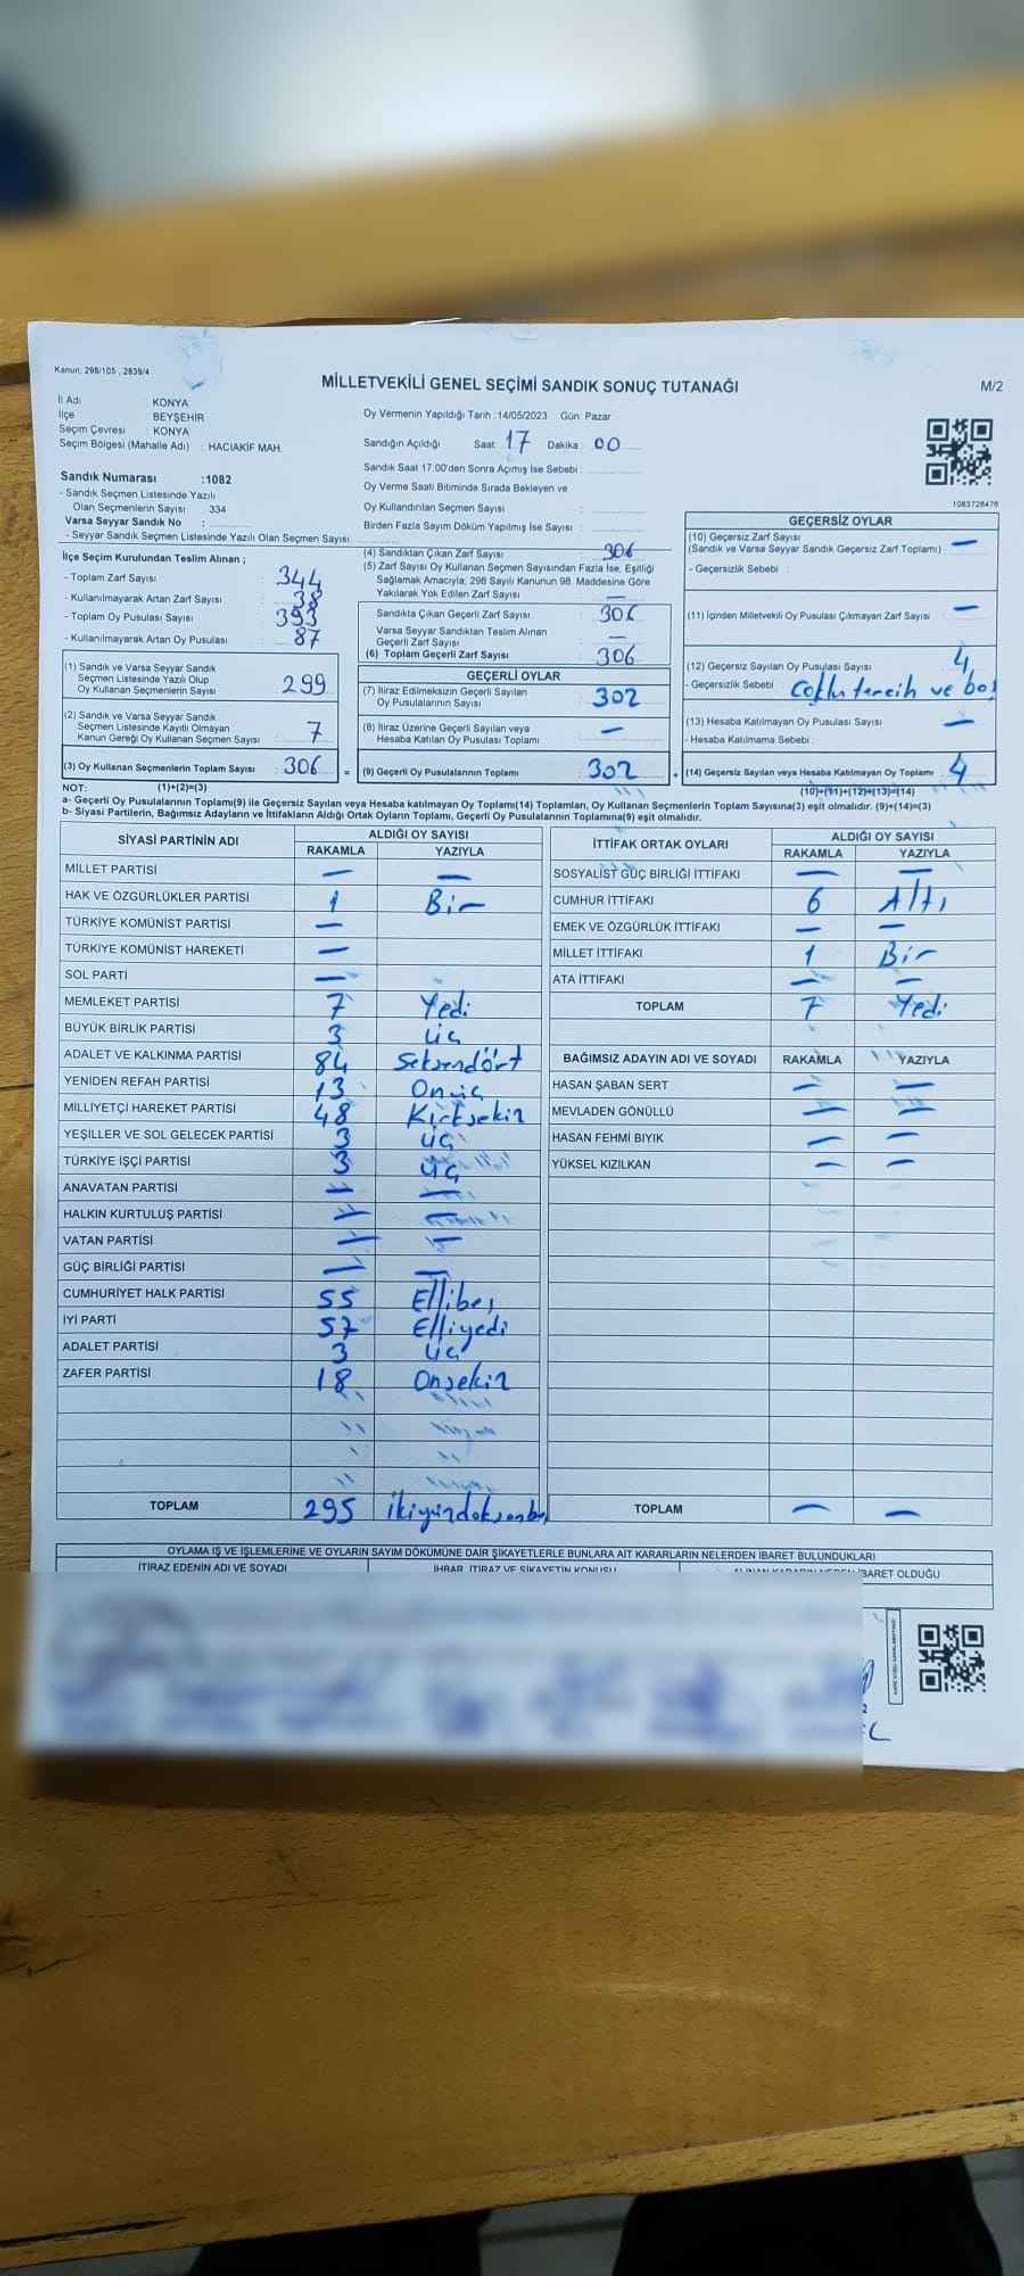 Kanun: 298/105 , 2839/4
MİLLETVEKİLİ GENEL SEÇİMİ SANDIK SONUÇ TUTANAĞI
M/2
İl Adı : KONYA
İlçe : BEYŞEHİR
Seçim Çevresi : KONYA
Seçim Bölgesi (Mahalle Adı) : HACIAKİF MAH.
Oy Vermenin Yapıldığı Tarih :14/05/2023 Gün: Pazar
Sandığın Açıldığı Saat: 17 Dakika: 00
Sandık Saat 17.00'den Sonra Açımış İse Sebebi :
Oy Verme Saati Bitiminde Sırada Bekleyen ve
Oy Kullandırılan Seçmen Sayısı :
Birden Fazla Sayım Döküm Yapılmış İse Sayısı :
1083728476
Sandık Numarası :1082
- Sandık Seçmen Listesinde Yazılı
Olan Seçmenlerin Sayısı 334
Varsa Seyyar Sandık No :
- Seyyar Sandık Seçmen Listesinde Yazılı Olan Seçmen Sayısı:
İlçe Seçim Kurulundan Teslim Alınan ;
- Toplam Zarf Sayısı : 344
- Kullanılmayarak Artan Zarf Sayısı : 38
- Toplam Oy Pusulası Sayısı : 393
- Kullanılmayarak Artan Oy Pusulası : 87
(1) Sandık ve Varsa Seyyar Sandık
Seçmen Listesinde Yazılı Olup
Oy Kullanan Seçmenlerin Sayısı : 299
(2) Sandık ve Varsa Seyyar Sandık
Seçmen Listesinde Kayıtlı Olmayan
Kanun Gereği Oy Kullanan Seçmen Sayısı : 7
(3) Oy Kullanan Seçmenlerin Toplam Sayısı : 306 =
(4) Sandıktan Çıkan Zarf Sayısı : 306
(5) Zarf Sayısı Oy Kullanan Seçmen Sayısından Fazla İse, Eşitliği
Sağlamak Amacıyla, 298 Sayılı Kanunun 98. Maddesine Göre
Yakılarak Yok Edilen Zarf Sayısı : —
Sandıkta Çıkan Geçerli Zarf Sayısı : 306
Varsa Seyyar Sandıktan Teslim Alınan
Geçerli Zarf Sayısı : —
(6) Toplam Geçerli Zarf Sayısı : 306
GEÇERLİ OYLAR
(7) İtiraz Edilmeksizin Geçerli Sayılan
Oy Pusulalarının Sayısı : 302
(8) İtiraz Üzerine Geçerli Sayılan veya
Hesaba Katılan Oy Pusulası Toplamı : —
(9) Geçerli Oy Pusulalarının Toplamı : 302 +
GEÇERSİZ OYLAR
(10) Geçersiz Zarf Sayısı
(Sandık ve Varsa Seyyar Sandık Geçersiz Zarf Toplamı) : —
- Geçersizlik Sebebi :
(11) İçinden Milletvekili Oy Pusulası Çıkmayan Zarf Sayısı : —
(12) Geçersiz Sayılan Oy Pusulası Sayısı : 4
- Geçersizlik Sebebi : Çoklu tercih ve boş
(13) Hesaba Katılmayan Oy Pusulası Sayısı : —
- Hesaba Katılmama Sebebi :
(14) Geçersiz Sayılan veya Hesaba Katılmayan Oy Toplamı : 4
NOT: (1)+(2)=(3) (10)+(11)+(12)+(13)=(14)
a- Geçerli Oy Pusulalarının Toplamı(9) ile Geçersiz Sayılan veya Hesaba katılmayan Oy Toplamı(14) Toplamları, Oy Kullanan Seçmenlerin Toplam Sayısına(3) eşit olmalıdır. (9)+(14)=(3)
b- Siyasi Partilerin, Bağımsız Adayların ve İttifakların Aldığı Ortak Oyların Toplamı, Geçerli Oy Pusulalarının Toplamına(9) eşit olmalıdır.
SİYASİ PARTİNİN ADI ALDIĞI OY SAYISI
RAKAMLA YAZIYLA
MİLLET PARTİSİ — —
HAK VE ÖZGÜRLÜKLER PARTİSİ 1 Bir
TÜRKİYE KOMÜNİST PARTİSİ —
TÜRKİYE KOMÜNİST HAREKETİ —
SOL PARTİ —
MEMLEKET PARTİSİ 7 Yedi
BÜYÜK BİRLİK PARTİSİ 3 üç
ADALET VE KALKINMA PARTİSİ 84 Seksendört
YENİDEN REFAH PARTİSİ 13 Onüç
MİLLİYETÇİ HAREKET PARTİSİ 48 Kırksekiz
YEŞİLLER VE SOL GELECEK PARTİSİ 3 üç
TÜRKİYE İŞÇİ PARTİSİ 3 üç
ANAVATAN PARTİSİ — —
HALKIN KURTULUŞ PARTİSİ — —
VATAN PARTİSİ — —
GÜÇ BİRLİĞİ PARTİSİ — —
CUMHURİYET HALK PARTİSİ 55 Ellibeş
İYİ PARTİ 57 Elliyedi
ADALET PARTİSİ 3 üç
ZAFER PARTİSİ 18 Onsekiz
TOPLAM 295 ikiyüzdoksanbeş
İTTİFAK ORTAK OYLARI ALDIĞI OY SAYISI
RAKAMLA YAZIYLA
SOSYALİST GÜÇ BİRLİĞİ İTTİFAKI — —
CUMHUR İTTİFAKI 6 Altı
EMEK VE ÖZGÜRLÜK İTTİFAKI — —
MİLLET İTTİFAKI 1 Bir
ATA İTTİFAKI — —
TOPLAM 7 Yedi
BAĞIMSIZ ADAYIN ADI VE SOYADI RAKAMLA YAZIYLA
HASAN ŞABAN SERT — —
MEVLADEN GÖNÜLLÜ — —
HASAN FEHMİ BIYIK — —
YÜKSEL KIZILKAN — —
TOPLAM — —
OYLAMA İŞ VE İŞLEMLERİNE VE OYLARIN SAYIM DÖKÜMÜNE DAİR ŞİKAYETLERLE BUNLARA AİT KARARLARIN NELERDEN İBARET BULUNDUKLARI
İTİRAZ EDENİN ADI VE SOYADI İHBAR, İTİRAZ VE ŞİKAYETİN KONUSU